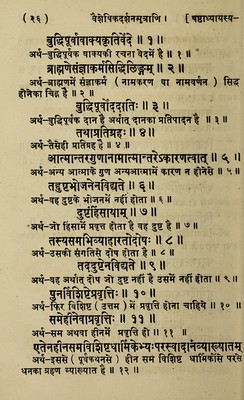 ( २६ ) वैशेषिकदर्शनसूत्राणि । [ षष्ठाध्यायस्य-
बुद्धिपूर्वावाक्यकृतिर्वेदे ॥ १ ॥
अर्थ-बुद्धिपूर्वक वाक्यकी रचना वेदमें है ॥ १ ॥
ब्राह्मणेसंज्ञाकर्मसिद्धिलिङ्गम् ॥ २ ॥
अर्थ-ब्राह्मणमें संज्ञाकर्म ( नामकरण वा नामवर्णन ) सिद्ध
होनेका चिह्न है ॥ २ ॥
बुद्धिपूर्वोददातिः ॥ ३ ॥
अर्थ-बुद्धिपूर्वक दान है अर्थात् दानका प्रतिपादन है ॥ ३ ॥
तथाप्रतिग्रहः ॥ ४ ॥
अर्थ-तैसेही प्रतिग्रह है ॥ ४ ॥
आत्मान्तरगुणानामात्मान्तरेऽकारणत्वात् ॥ ५ ॥
अर्थ-अन्य आत्माके गुण अन्यआत्मामें कारण न होनेसे ॥ ५ ॥
तद्दुष्टभोजनेनविद्यते ॥ ६ ॥
अर्थ-वह दुष्टके भोजनमें नहीं होता ॥ ६ ॥
दुष्टंहिंसायाम् ॥ ७ ॥
अर्थ-जो हिंसामें प्रवृत्त होता है वह दुष्ट है ॥ ७ ॥
तस्यसमभिव्याहारतोदोषः ॥ ८ ॥
अर्थ-उसकी संगतिसे दोष होता है ॥ ८ ॥
तददुष्टेनविद्यते ॥ ९ ॥
अर्थ-वह अर्थात् दोष जो दुष्ट नहीं है उसमें नहीं होता ॥ ९ ॥
पुनर्विशिष्टेप्रवृत्तिः ॥ १० ॥
अर्थ-फिर विशिष्ट ( उत्तम ) में प्रवृत्ति होना चाहिये ॥ १० ॥
समेहीनेवाप्रवृत्तिः ॥ ११ ॥
अर्थ-सम अथवा हीनमें प्रवृत्ति हो ॥ ११ ॥
एतेनहीनसमविशिष्टधार्मिकेभ्यःपरस्वादानंव्याख्यातम् ॥
अर्थ-इससे ( पूर्वकथनसे ) हीन सम विशिष्ट धार्मिकोंसे परसे
धनका ग्रहण व्याख्यात है ॥ १२ ॥